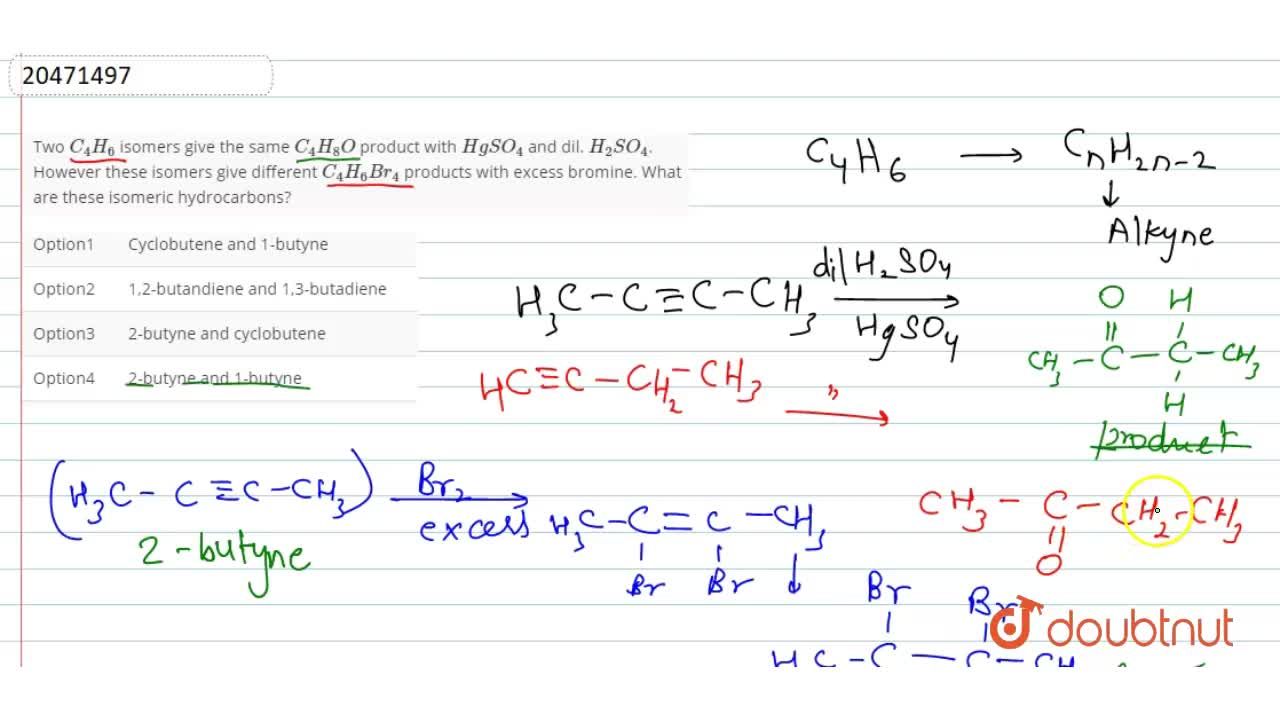 20471497
Two C₄H₆ isomers give the same C₄H₈O product with HgSO₄ and dil. H₂SO₄.
However these isomers give different C₄H₆Br₄ products with excess bromine. What
are these isomeric hydrocarbons?
Option1 Cyclobutene and 1-butyne
Option2 1,2-butandiene and 1,3-butadiene
Option3 2-butyne and cyclobutene
Option4 2-butyne and 1-butyne
C₄H₆ → CₙH₂ₙ₋₂
↓
Alkyne
H₃C − C ≡ C − CH₃ dil H₂SO₄ → HgSO₄
O H
CH₃ − C − C − CH₃
H
product
HC ≡ C − CH₂ − CH₃ " →
CH₃ − C − CH₂ − CH₃
O
(H₃C − C ≡ C − CH₃) Br₂ → excess H₃C − C = C − CH₃
Br Br
↓
2-butyne
Br Br
doubtnut